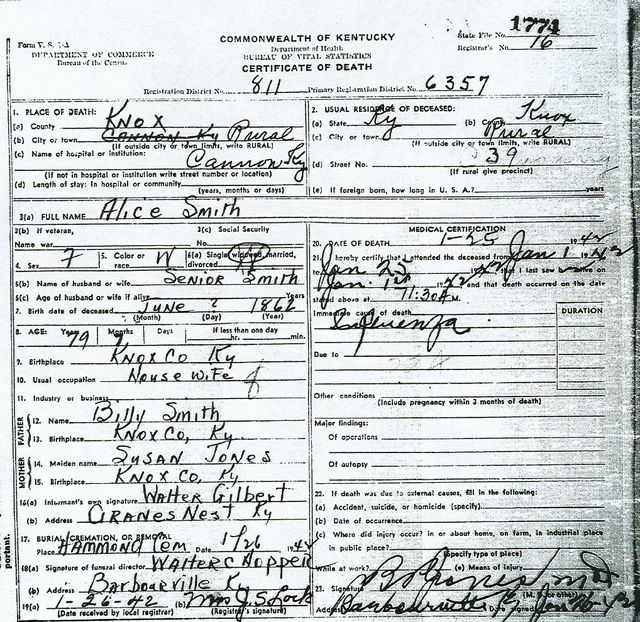 1774
COMMONWEALTH OF KENTUCKY
State File No.
Form V. S. 1-A
Department of Health
Registrar's No. 16
DEPARTMENT OF COMMERCE
BUREAU OF VITAL STATISTICS
Bureau of the Census
CERTIFICATE OF DEATH
Registration District No. 811 Primary Registration District No. 6357
1. PLACE OF DEATH:
(a) County Knox
(b) City or town Cannon Ky Rural
(If outside city or town limits, write RURAL)
(c) Name of hospital or institution:
Cannon Ky
(If not in hospital or institution write street number or location)
(d) Length of stay: In hospital or community (years, months or days)
2. USUAL RESIDENCE OF DECEASED:
(a) State Ky (b) County Knox
(c) City or town Rural
(If outside city or town limits, write RURAL)
(d) Street No. 39
(If rural give precinct)
(e) If foreign born, how long in U. S. A.? years
3(a) FULL NAME Alice Smith
3(b) If veteran,
Name war
3(c) Social Security
No.
4. Sex F
5. Color or race W
6(a) Single, widowed, married, divorced
5(b) Name of husband or wife Senior Smith
6(c) Age of husband or wife if alive Years
7. Birth date of deceased June ? 1862
(Month) (Day) (Year)
8. AGE: Years 79 Months 7 Days If less than one day
hr. min.
9. Birthplace Knox Co Ky
10. Usual occupation House wife
11. Industry or business
FATHER
12. Name Billy Smith
13. Birthplace Knox Co, Ky.
MOTHER
14. Maiden name Susan Jones
15. Birthplace Knox Co, Ky
16(a) Informant's own signature Walter Gilbert
(b) Address Cranes Nest Ky
17. BURIAL, CREMATION, OR REMOVAL
Place Hammond Cem Date 1/26 1942
18(a) Signature of funeral director Walter C Hopper
(b) Address Barbourville Ky
19(a) 1-26-42 (b) Mrs J. S. Lock
(Date received by local registrar) (Registrar's signature)
MEDICAL CERTIFICATION
20. DATE OF DEATH 1-25 1942
21. I hereby certify that I attended the deceased from Jan 1 1942
Jan 25 1942 that I last saw alive on
Jan. 1st 1942 and that death occurred on the date
stated above at 11:30 A M.
Immediate cause of death
Influenza
DURATION
Due to
Other conditions
(Include pregnancy within 3 months of death)
Major findings:
Of operations
Of autopsy
22. If death was due to external causes, fill in the following:
(a) Accident, suicide, or homicide (specify)
(b) Date of occurrence
(c) Where did injury occur? in or about home, on farm, in industrial place
in public place?
(Specify type of place)
While at work? (e) Means of injury
23. Signature
(M. D. or other)
Address Barbourville Ky Date signed Jan
portant.